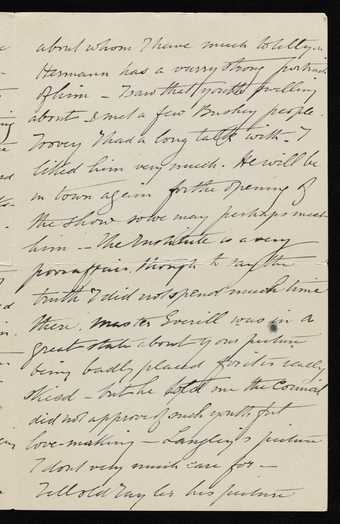 about whom I have much to tell you
Hermann has a very strong portrait
of him - I saw that youth smiling
about - I met a few Bushey people.
Tovey I had a long talk with - I
liked him very much. He will be
in town again for the opening of
the show so we may perhaps meet
him - The Institute is a very
poor affair, though to say the
truth I did not spend much time
there. Master Everill was in a
great state about your picture
being badly placed for it is really
skied - but he told me the Council
did not approve of such youthful
love-making - Langley's picture
I don't very much care for -
Tell old Tayler his picture